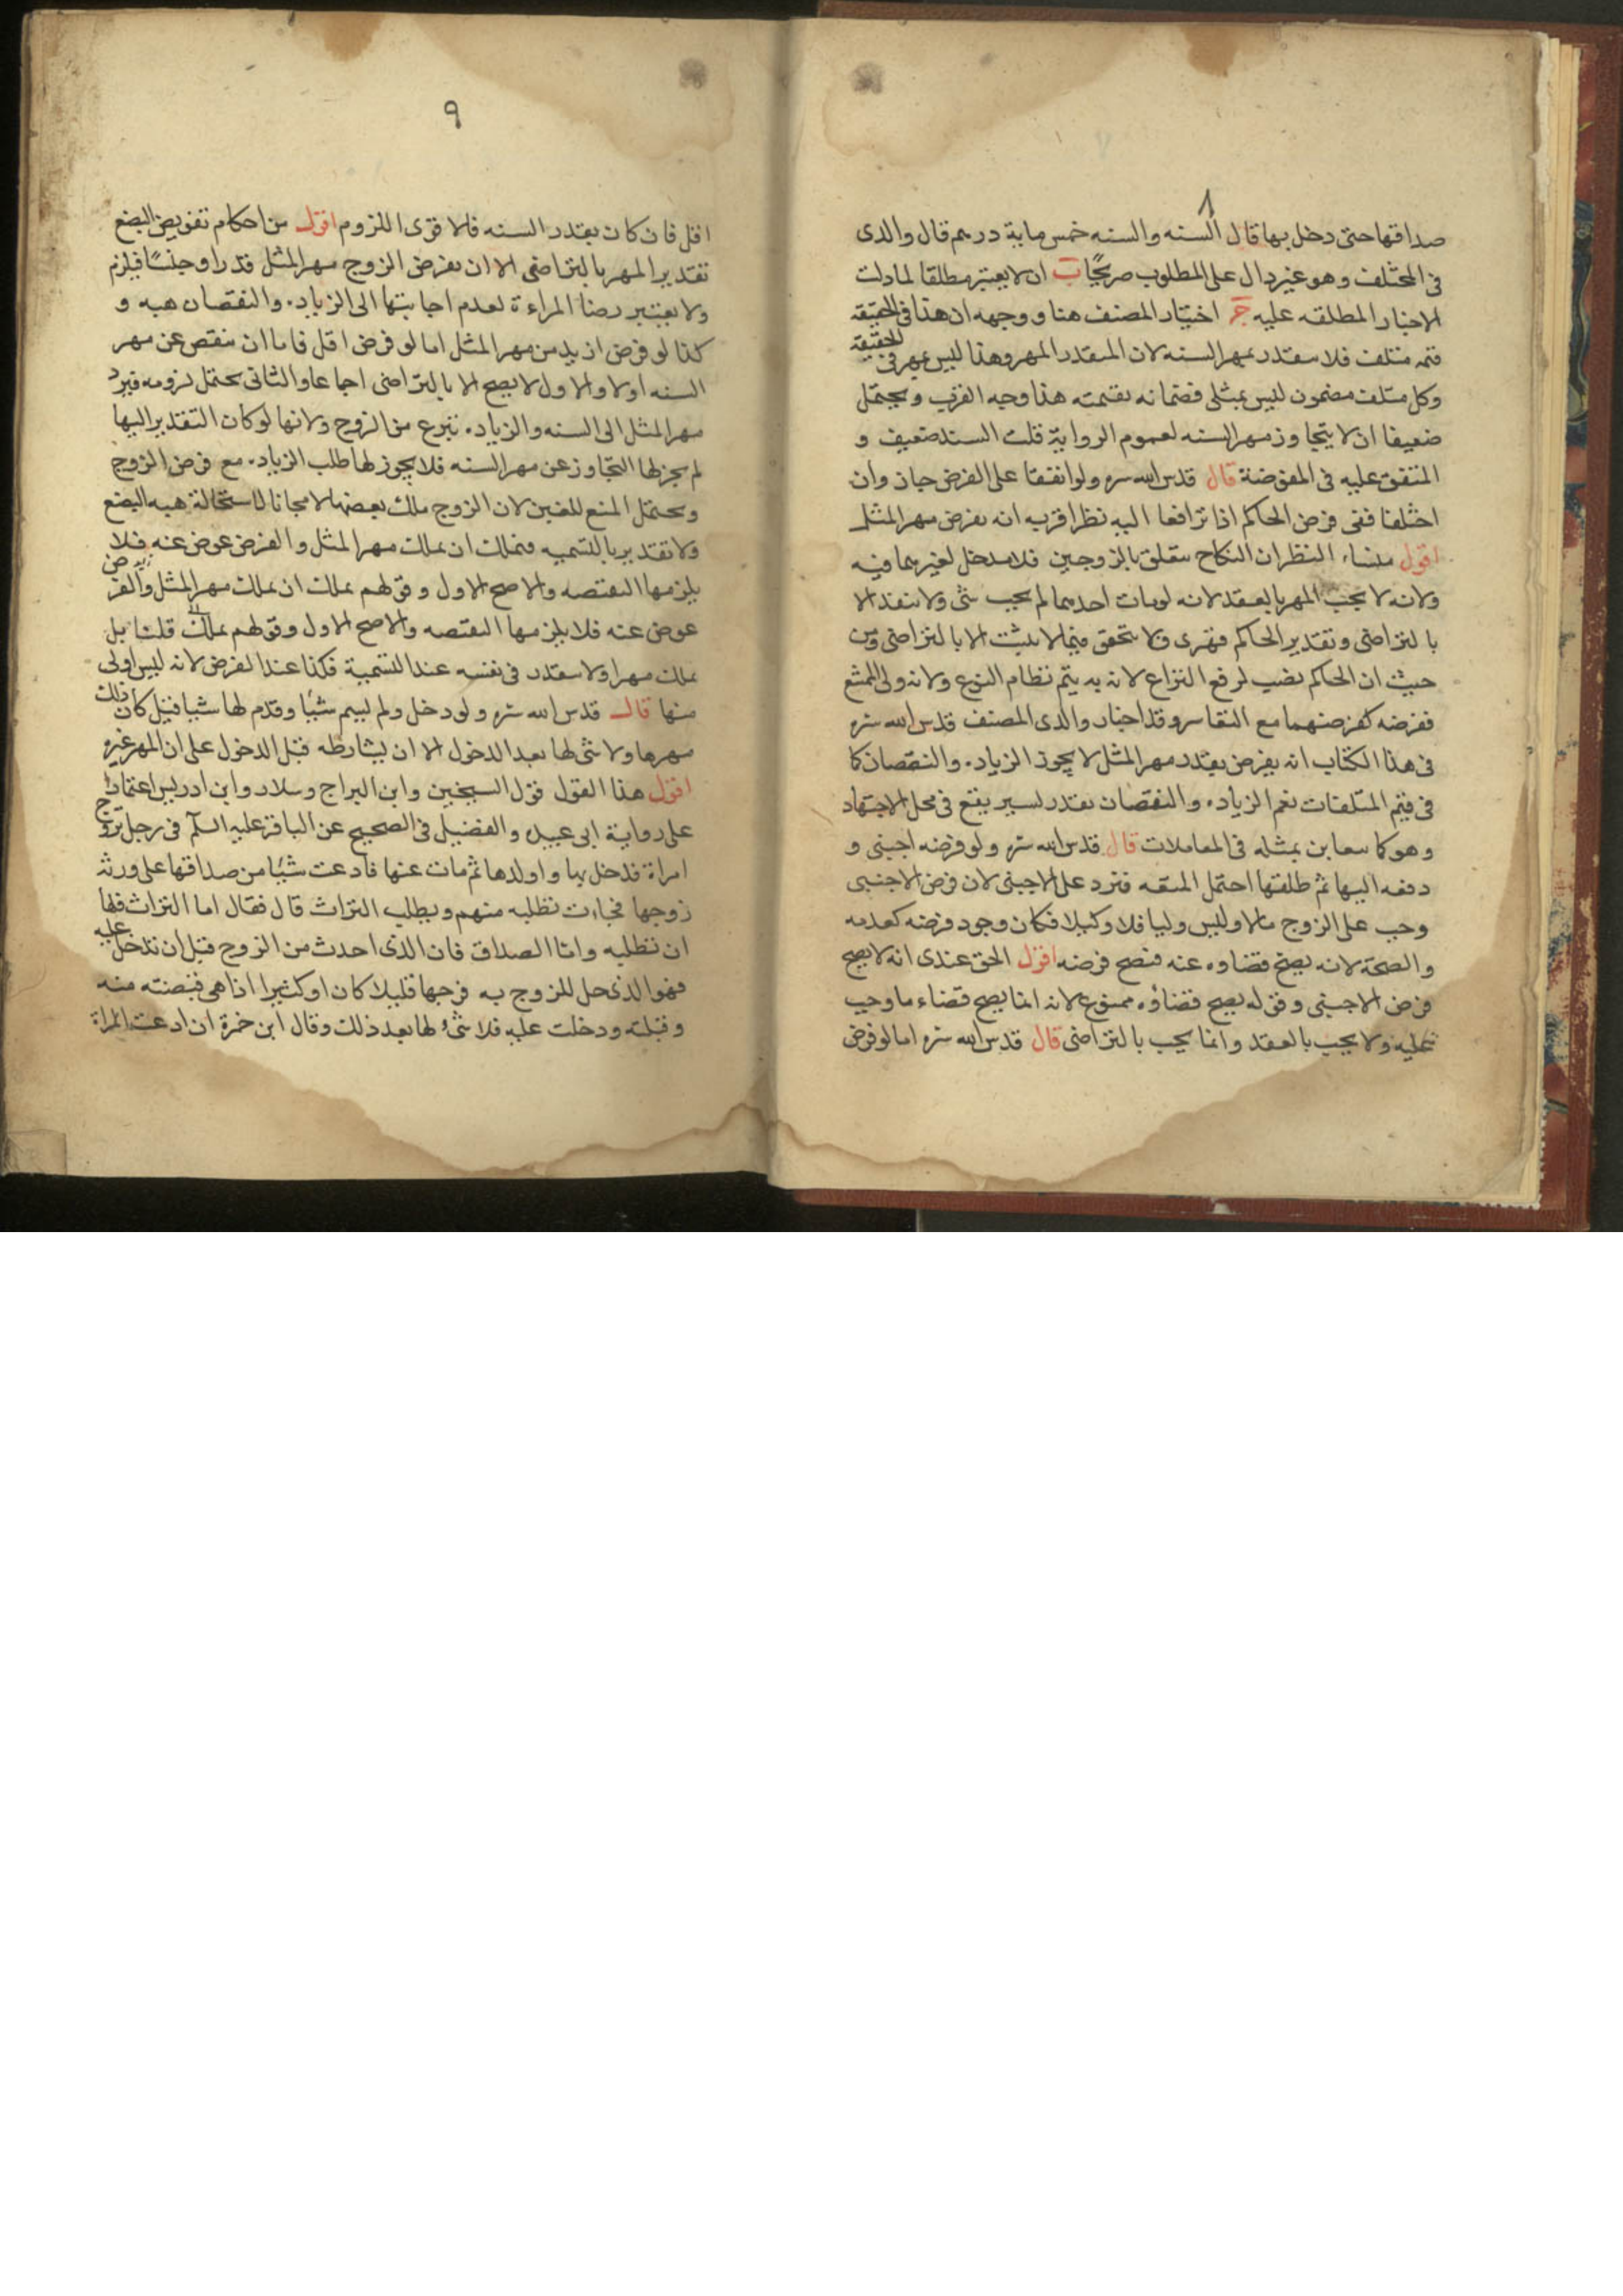 ٨
صداقها حتى دخل بها قال السنه والسنه خمس مایة درهم قال والدی
فی المختلف وهو غیر دال علی المطلوب صریحًا ب ان لا یعتبر مطلقا لما دلت
الاخبار المطلقه علیه ج اختیار المصنف هنا ووجهه ان هذا فی الحقیقة
قیمه متلف فلا یتقدر بمهر السنه لان المتقدر المهر وهذا لیس بمهر فی الحقیقة
وکل متلف مضمون لیس بمثلی فضمانه بقیمته هذا وجیه القرب ویحتمل
ضعیفا ان لا یتجاوز مهر السنه لعموم الروایة قلت السند ضعیف و
المتفق علیه فی المفوضة قال قدس الله سره ولو اتفقا علی الفرض جاز وان
اختلفا ففی فرض الحاکم اذا ترافعا الیه نظر اقربه انه یفرض مهر المثل
اقول منشاء النظر ان النکاح یتعلق بالزوجین فلا مدخل لغیرهما فیه
ولانه لا یجب المهر بالعقد لانه لو مات احدهما لم یجب شی ولا ینفذ الا
بالتراضی وتقدیر الحاکم قهری فلا یتحقق فیما لا یثبت الا بالتراضی ومن
حیث ان الحاکم نصب لرفع النزاع لانه به یتم نظام النوع ولانه ولی الممتنع
ففرضه کفرضهما مع التعاسر وقد اختار والدی المصنف قدس الله سره
فی هذا الکتاب انه یفرض بقدر مهر المثل لا یجوز الزیاده والنقصان کما
فی قیم المتلفات نعم الزیاده والنقصان بقدر یسیر یقع فی محل الاجتهاد
وهو کما یتغابن بمثله فی المعاملات قال قدس الله سره ولو فرضه اجنبی و
دفعه الیها ثم طلقها احتمل المتعه فترد علی الاجنبی لان فرض الاجنبی
وجب علی الزوج مالا ولیس ولیا فلا وکیلا فکان وجود فرضه کعدمه
والصحة لانه یصح قضاوه عنه فیصح فرضه اقول الحق عندی انه لا یصح
فرض الاجنبی وقوله یصح قضاؤه ممنوع لانه انما یصح قضاء ما وجب
علیه ولا یجب بالعقد وانما یجب بالتراضی قال قدس الله سره اما لو فرض
٩
اقل فان کان بقدر السنه فالاقوی اللزوم اقول من احکام تفویض البضع
تقدیر المهر بالتراضی الا ان یفرض الزوج مهر المثل قدرا وجنسًا فیلزم
ولا یعتبر رضا المراءة لعدم اجابتها الی الزیاده والنقصان هبه و
کذا لو فرض ازید من مهر المثل اما لو فرض اقل فاما ان ینقص عن مهر
السنه اولا والاول لا یصح الا بالتراضی اجماعا والثانی یحتمل لزومه فیرد
مهر المثل الی السنه والزیاده تبرع من الزوج ولانها لو کان التقدیر الیها
لم یجز لها التجاوز عن مهر السنه فلا یجوز لها طلب الزیاده مع فرض الزوج
ویحتمل المنع للغبن لان الزوج ملک بعضها لا مجانا لاستحالة هبه البضع
ولا تقدیر بالتسمیه فتملک ان یملک مهر المثل والفرض عوض عنه فلا
یلزمها النقیصه والاصح الاول وقولهم یملک ان یملک مهر المثل والفرض
عوض عنه فلا یلزمها النقیصه والاصح الاول وقولهم یملک قلنا بل
یملک مهرا ولا یتقدر فی نفسه عند التسمیة فکذا عند الفرض لانه لیس اولی
منها قال قدس الله سره ولو دخل ولم یسم شیًا وقدم لها شیا قیل کان ذلک
مهرها ولا شی لها بعد الدخول الا ان یشارطه قبل الدخول علی ان المهر غیره
اقول هذا القول قول الشیخین وابن البراج وسلار وابن ادریس اعتمادا
علی روایة ابی عبیده والفضیل فی الصحیح عن الباقر علیه السلم فی رجل تزوج
امراة فدخل بها واولدها ثم مات عنها فادعت شیًا من صداقها علی ورثه
زوجها فجاءت تطلبه منهم ویطلب التراث قال فقال اما التراث فلها
ان تطلبه واما الصداق فان الذی احدث من الزوج قبل ان تدخل علیه
فهو الذی حل للزوج به فرجها قلیلا کان او کثیرا اذا هی قبضته منه
وقبلته ودخلت علیه فلا شیء لها بعد ذلک وقال ابن حمزة ان ادعت المراة